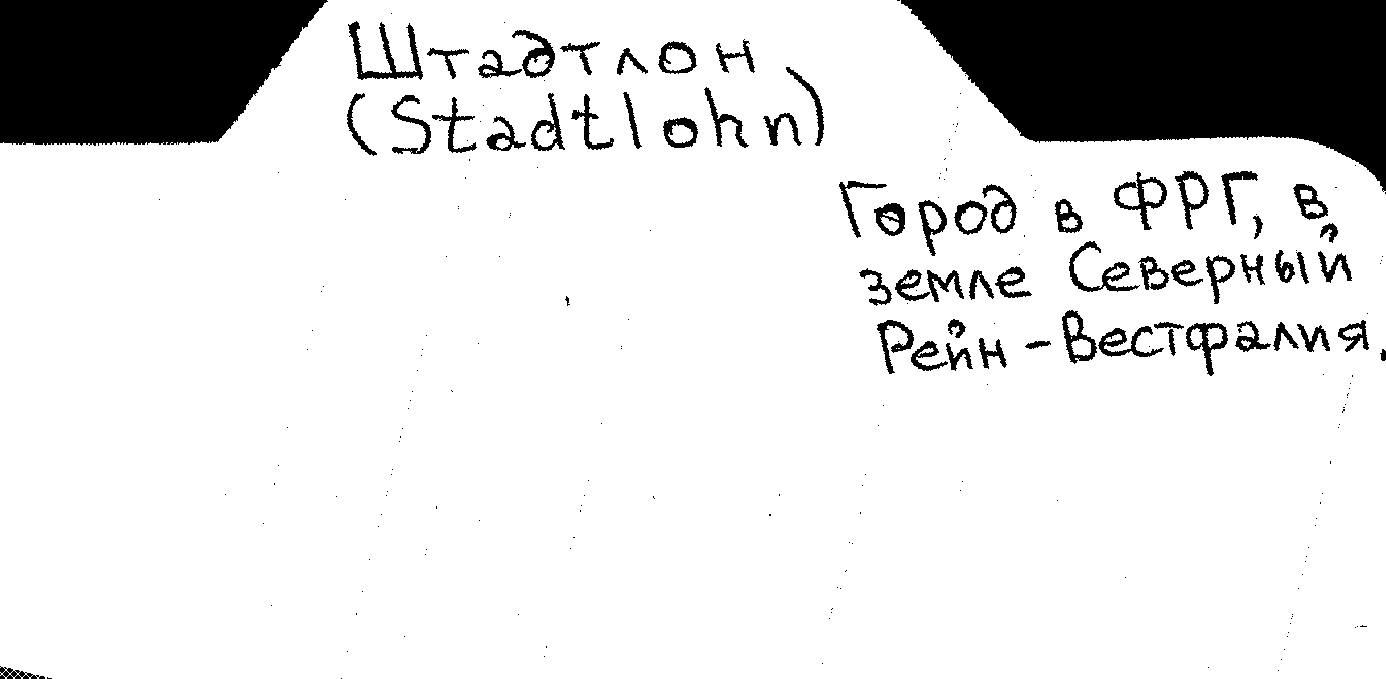 Штадтлон
(Stadtlohn)
Город в ФРГ, в
земле Северный
Рейн-Вестфалия.